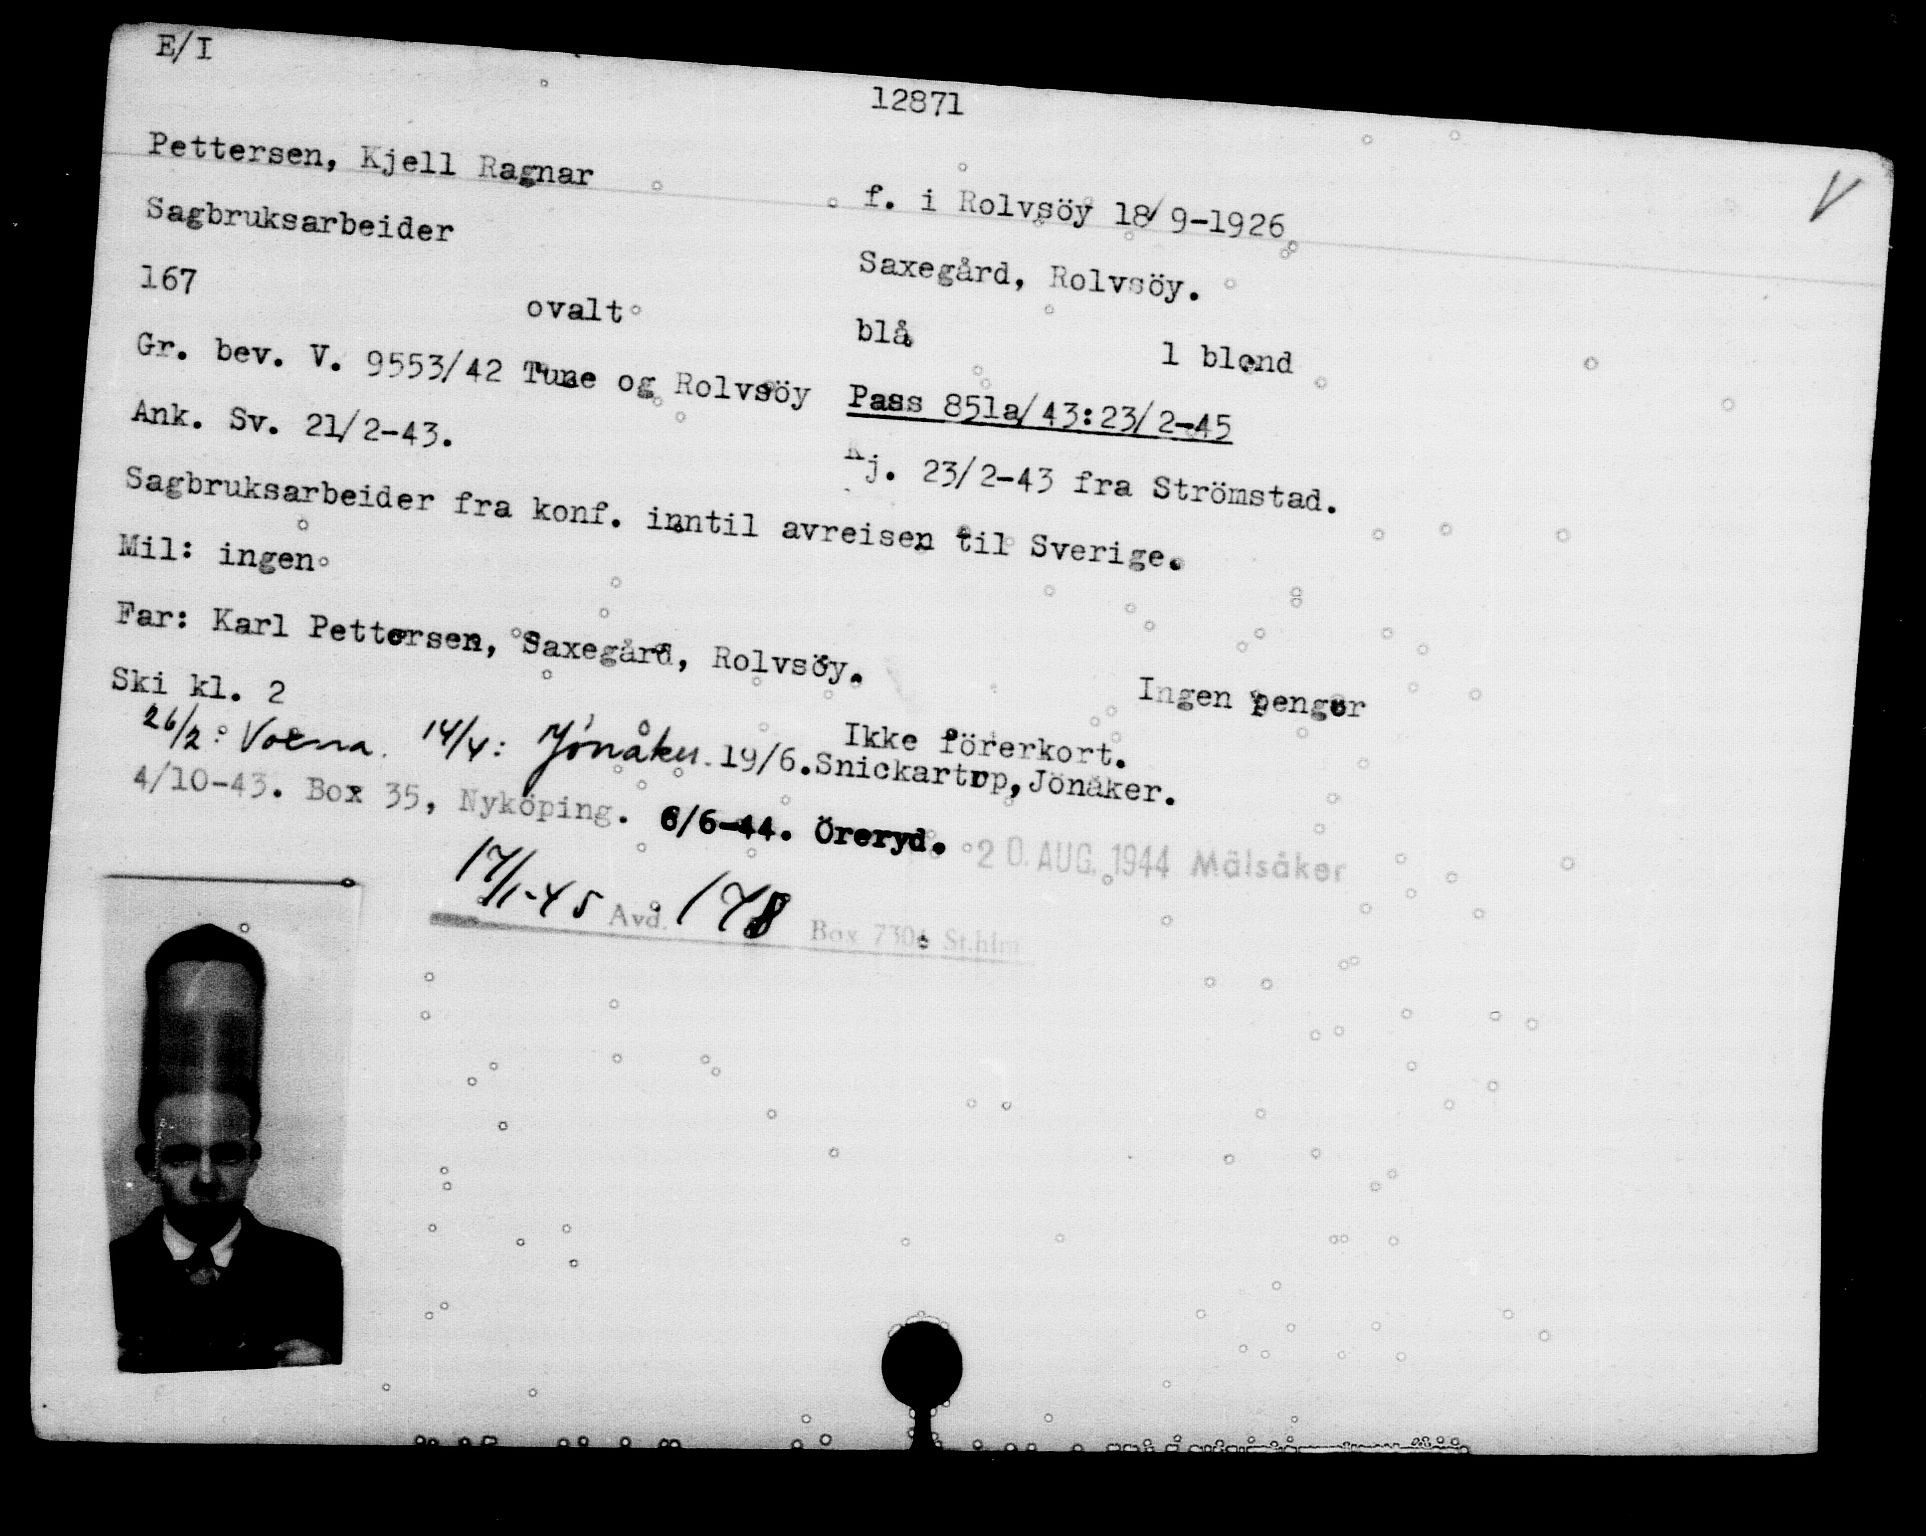 E/I
12871
Pettersen, Kjell Ragnar
f. i Rolvsöy 18/9-1926
Sagbruksarbeider
Saxegård, Rolvsöy.
167 ovalt blå l blond
Gr. bev. V. 9553/42 Tune og Rolvsöy Pass 851a/43:23/2-45
Ank. Sv. 21/2-43.
Kj. 23/2-43 fra Strömstad.
Sagbruksarbeider fra konf. inntil avreisen til Sverige.
Mil: ingen
Far: Karl Pettersen, Saxegård, Rolvsöy.
Ingen penger
Ski kl. 2
Ikke förerkort.
26/2: Voxna. 14/4: Jönåker. 19/6. Snickartrop, Jönåker.
4/10-43. Box 35, Nyköping. 6/6-44. Öreryd. 20. AUG. 1944 Mälsåker
17/1-45 Avd. 178 Box 7304 St.hlm
V